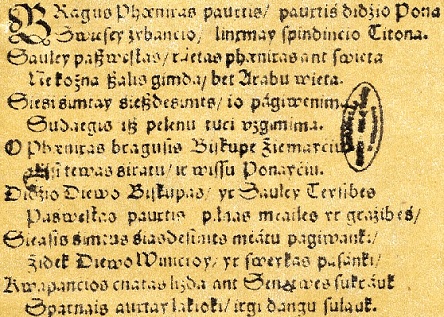 BRagus Phœniras paurtis/ paurtis didżio Pona
Żwusey żybancio/ linɾmay spindincio Titona.
Sauley paßwelkas/ rɑetas phœniras ant swieta
Ne kożna ßalis gimda/ bet Arabu wieta.
Siesi simtay sießdesimts/ io págiwenim
Sudaegis iß pelenu tuci vzgimima.
O Phœniras bragusis Biskupe Żiemayciu
tewas siratu/ ir wissu Ponayciu.
Didżio Diewo Biskupas/ yr Sauley
Paswelkas paurtis meailes yr grażibes/
Sieasis simtus siasdesimts meatu pagiwank/
Żidek Diewo Wincioy/ yr swerkas pasánk/
Kwapancios cnatas liżda ant sukráuk
Sparnais aurtay lakioki/ irgi dangu suláuk.